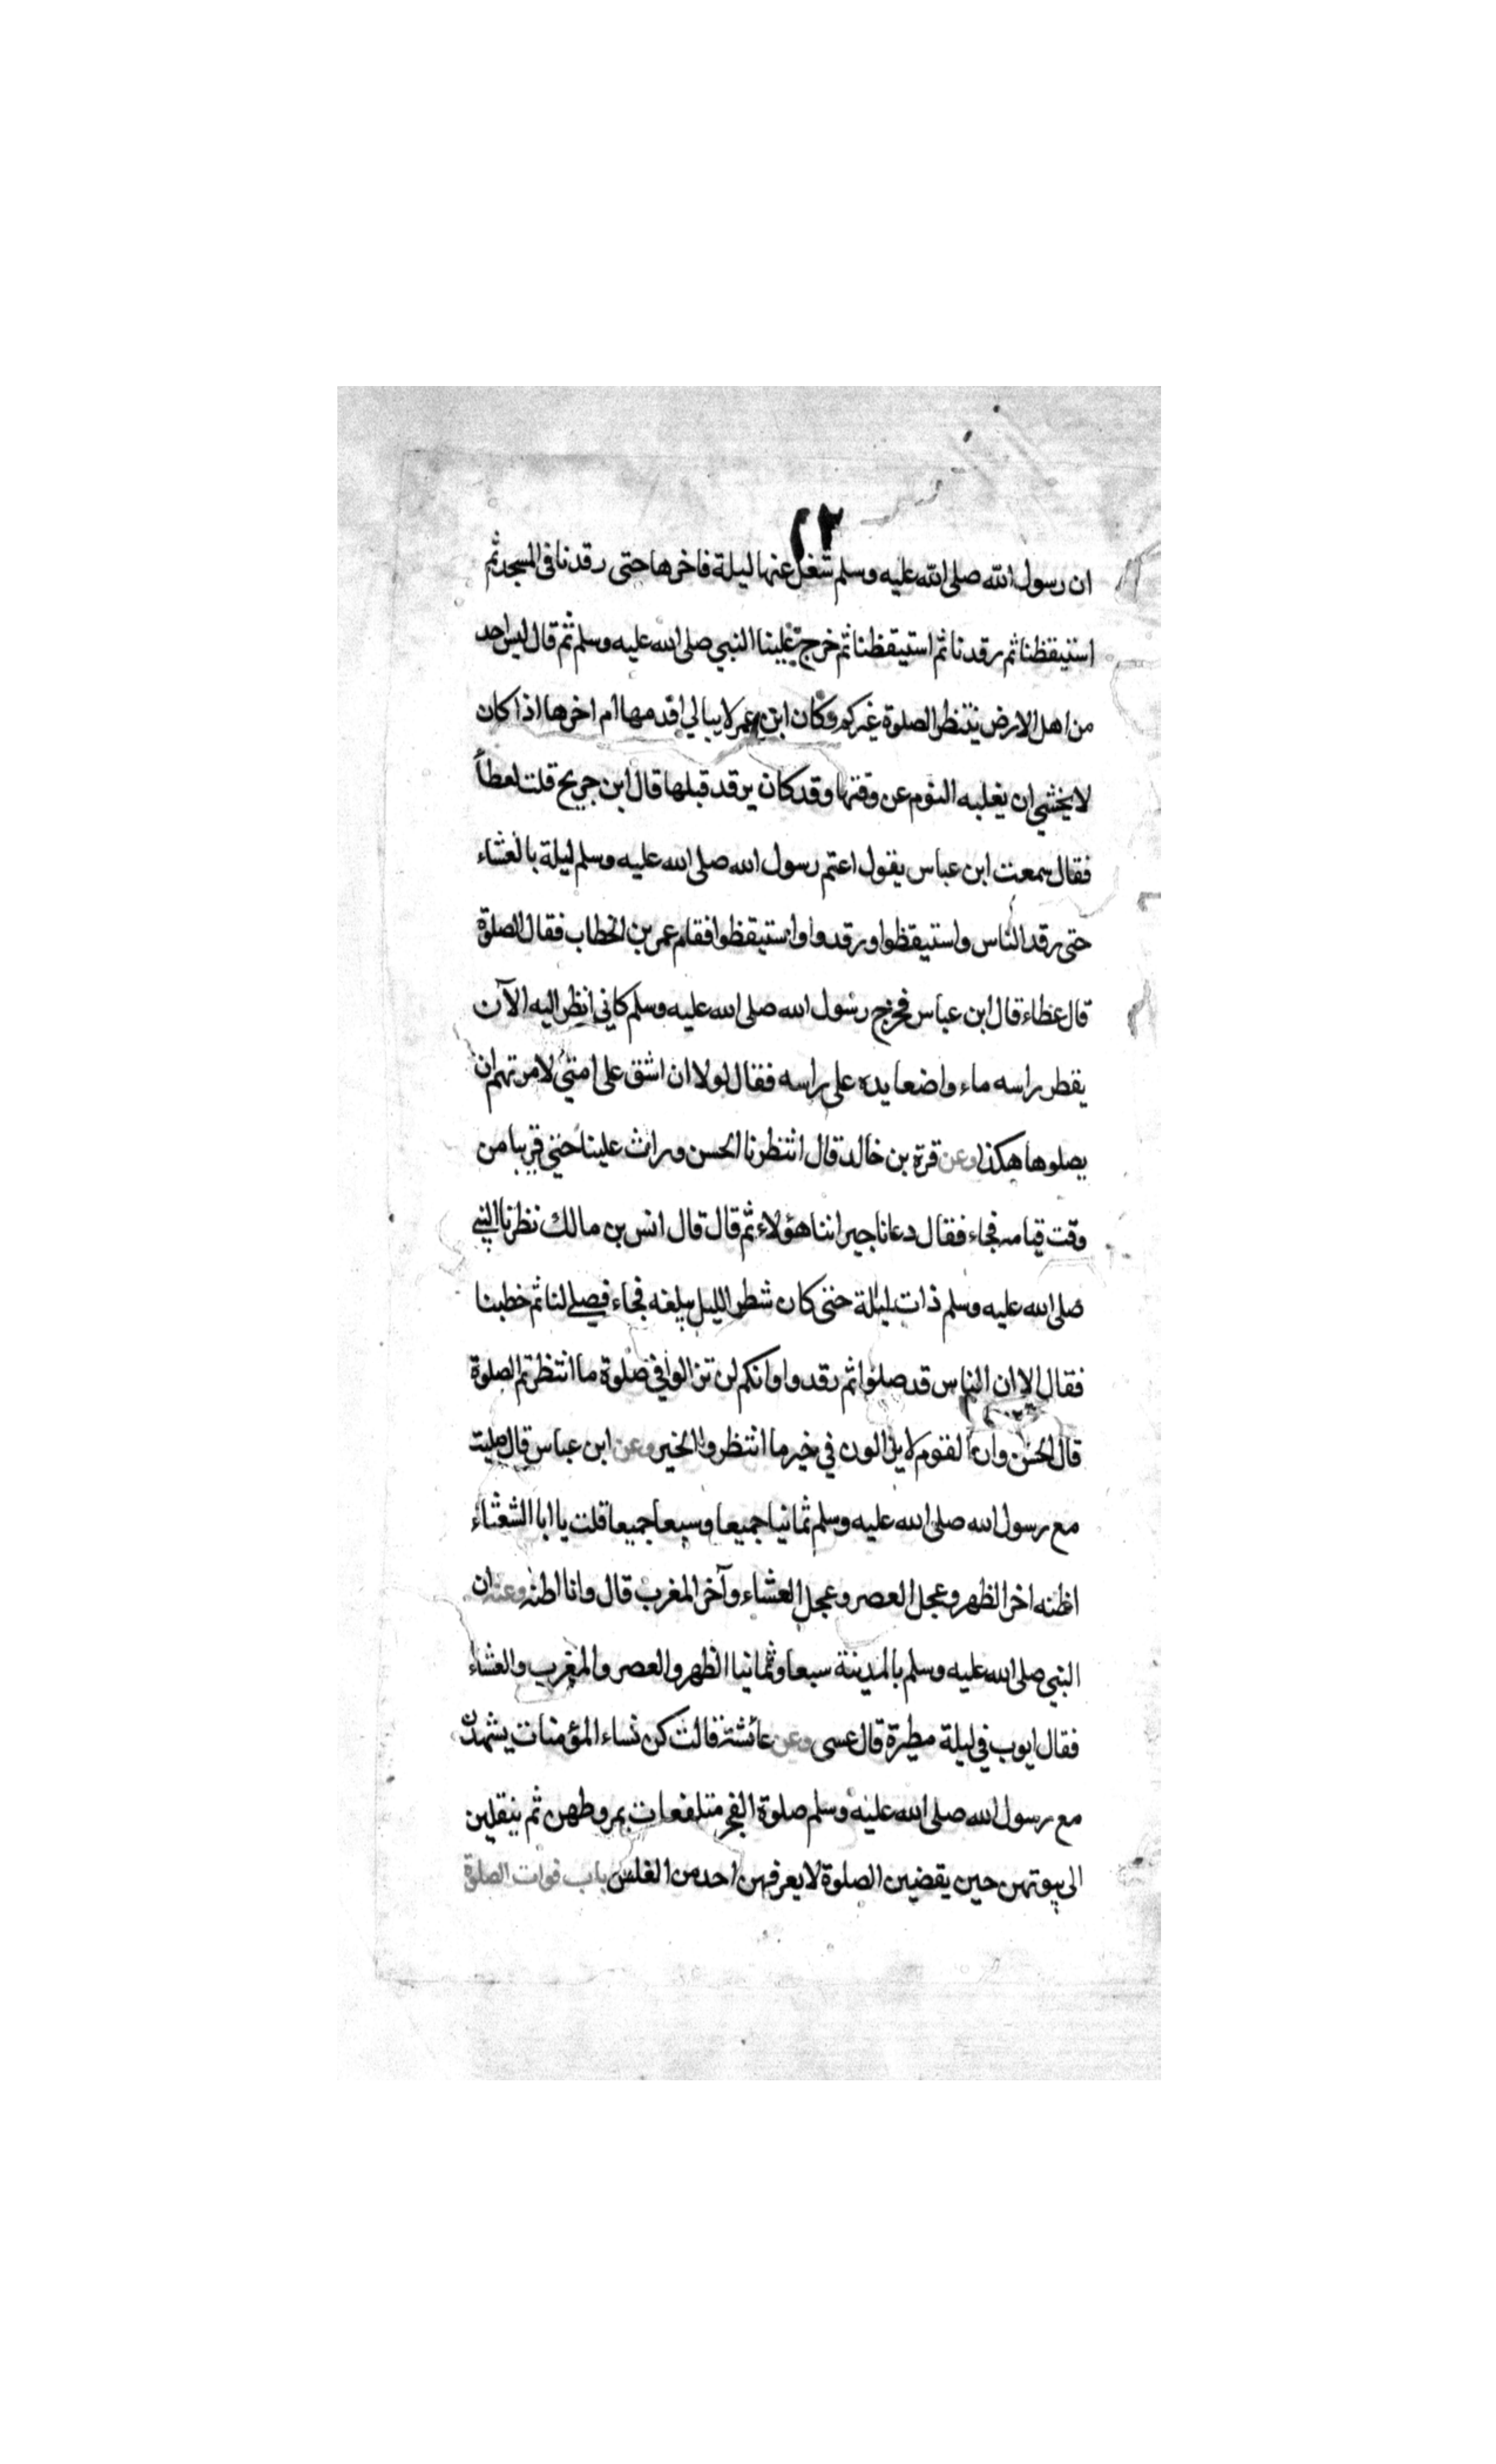 ٢٢
ان رسول الله صلى الله عليه وسلم شغل عنها ليلة فاخرها حتى رقدنا فى المسجد ثم
استيقظنا ثم رقدنا ثم استيقظنا ثم خرج علينا النبي صلى الله عليه وسلم ثم قال ليس احد
من اهل الارض ينتظر الصلوة غيركم وكان ابن عمر لا يبالي اقدمها ام اخرها اذا كان
لا يخشي ان يغلبه النوم عن وقتها وقد كان يرقد قبلها قال ابن جريج قلت لعطاً
فقال سمعت ابن عباس يقول اعتم رسول الله صلى الله عليه وسلم ليلة بالعشاء
حتى رقد الناس واستيقظوا ورقدوا واستيقظوا فقام عمر بن الخطاب فقال الصلوة
قال عطاء قال ابن عباس فخرج رسول الله صلى الله عليه وسلم كاني انظر اليه الآن
يقطر راسه ماء واضعا يده على راسه فقال لولا ان اشق على امتي لامرتهم ان
يصلوها هكذا وعن قرة بن خالد قال انتظرنا الحسن وراث علينا حتي قريبا من
وقت قيامه فجاء فقال دعانا جيراننا هؤلاء ثم قال قال انس بن مالك نظرنا النبي
صلى الله عليه وسلم ذات ليلة حتى كان شطر الليل يبلغه فجاء فصلى لنا ثم خطبنا
فقال الا ان الناس قد صلوا ثم رقدوا وانكم لن تزالوا في صلوة ما انتظرتم الصلوة
قال الحسن وان القوم لا يزالون في خير ما انتظروا الخير وعن ابن عباس قال صليت
مع رسول الله صلى الله عليه وسلم ثمانيا جميعا وسبعا جميعا قلت يا ابا الشعثاء
اظنه اخر الظهر وعجل العصر وعجل العشاء وآخر المغرب قال وانا اظنه وعنه ان
النبي صلى الله عليه وسلم بالمدينة سبعا وثمانيا الظهر والعصر والمغرب والعشاء
فقال ايوب في ليلة مطيرة قال عسى وعن عائشة قالت كن نساء المؤمنات يشهدن
مع رسول الله صلى الله عليه وسلم صلوة الفجر متلفعات بمروطهن ثم ينقلبن
الى بيوتهن حين يقضين الصلوة لا يعرفهن احد من الغلس باب فوات الصلوة